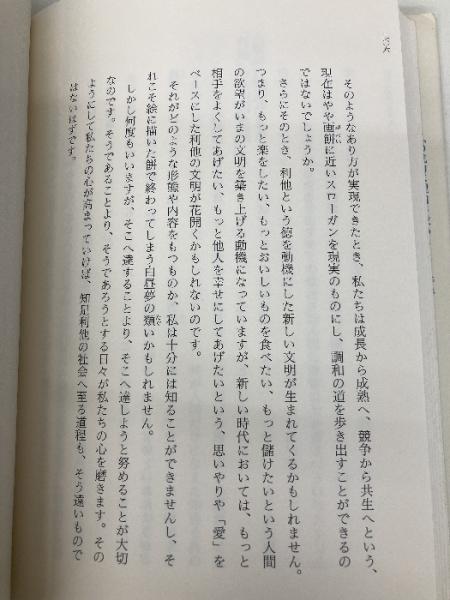 そのようなあり方が実現できたとき、私たちは成長から成熟へ、競争から共生へという、
現在はやや画餅に近いスローガンを現実のものにし、調和の道を歩き出すことができるの
ではないでしょうか。
さらにそのとき、利他という徳を動機にした新しい文明が生まれてくるかもしれません。
つまり、もっと楽をしたい、もっとおいしいものを食べたい、もっと儲けたいという人間
の欲望がいまの文明を築き上げる動機になっていますが、新しい時代においては、もっと
相手をよくしてあげたい、もっと他人を幸せにしてあげたいという、思いやりや「愛」を
ベースにした利他の文明が花開くかもしれないのです。
それがどのような形態や内容をもつものか、私は十分には知ることができませんし、そ
れこそ絵に描いた餅で終わってしまう白昼夢の類いかもしれません。
しかし何度もいいますが、そこへ達することより、そこへ達しようと努めることが大切
なのです。そうであることより、そうであろうとする日々が私たちの心を磨きます。その
ようにして私たちの心が高まっていけば、知足利他の社会へ至る道程も、そう遠いもので
はないはずです。